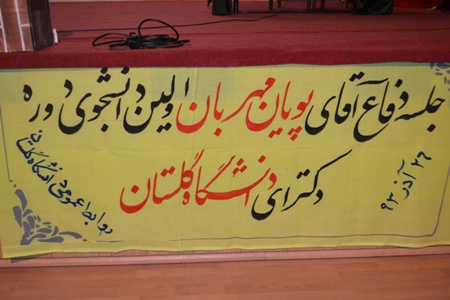 جلسه دفاع آقای پویان مهربان اولین دانشجوی دوره
دکترای دانشگاه گلستان
۲۶ آذر ۹۲
روابط عمومی دانشگاه گلستان